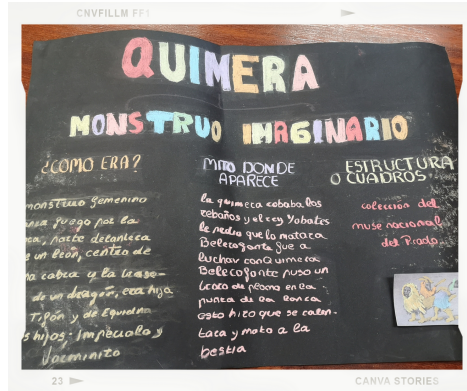 CNVFILLM FF1
QUIMERA
MONSTRUO IMAGINARIO
¿COMO ERA?
monstruo femenino
fuego por la
parte delantera
un león, centro de
cabra y la trase-
de un dragón, era hija
Tifón y de Equidna
hijos-
MITO DONDE
APARECE
la quimera robaba los
rebaños y el rey Yobates
le pedia que lo matara
Belerofonte fue a
luchar con Quimera
Belerofonte puso un
trozo de plomo en la
punta de la lanza
esto hizo que se calen-
tara y mato a la
bestia
ESTRUCTURA
O CUADROS
colección del
muse nacional
del Prado
23
CANVA STORIES